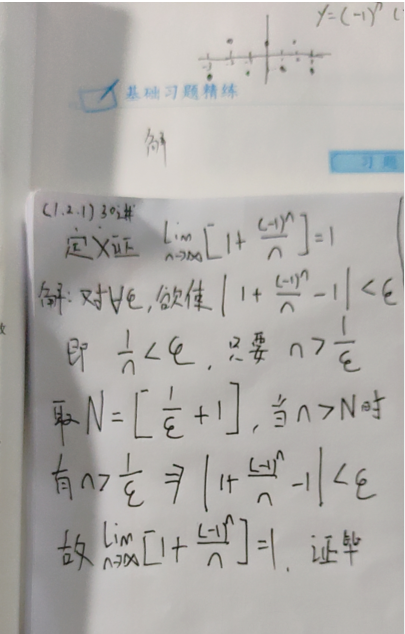 y=(-1)ⁿ
基础习题精练
解
习题
(1.2.1) 30讲
定义证 lim n→∞ [1 + (-1)ⁿ/n] = 1
解: 对∀ε, 欲使 | 1 + (-1)ⁿ/n - 1 | < ε
即 1/n < ε, 只要 n > 1/ε
取 N = [1/ε + 1], 当 n > N 时
有 n > 1/ε ⇒ | 1 + (-1)ⁿ/n - 1 | < ε
故 lim n→∞ [1 + (-1)ⁿ/n] = 1. 证毕